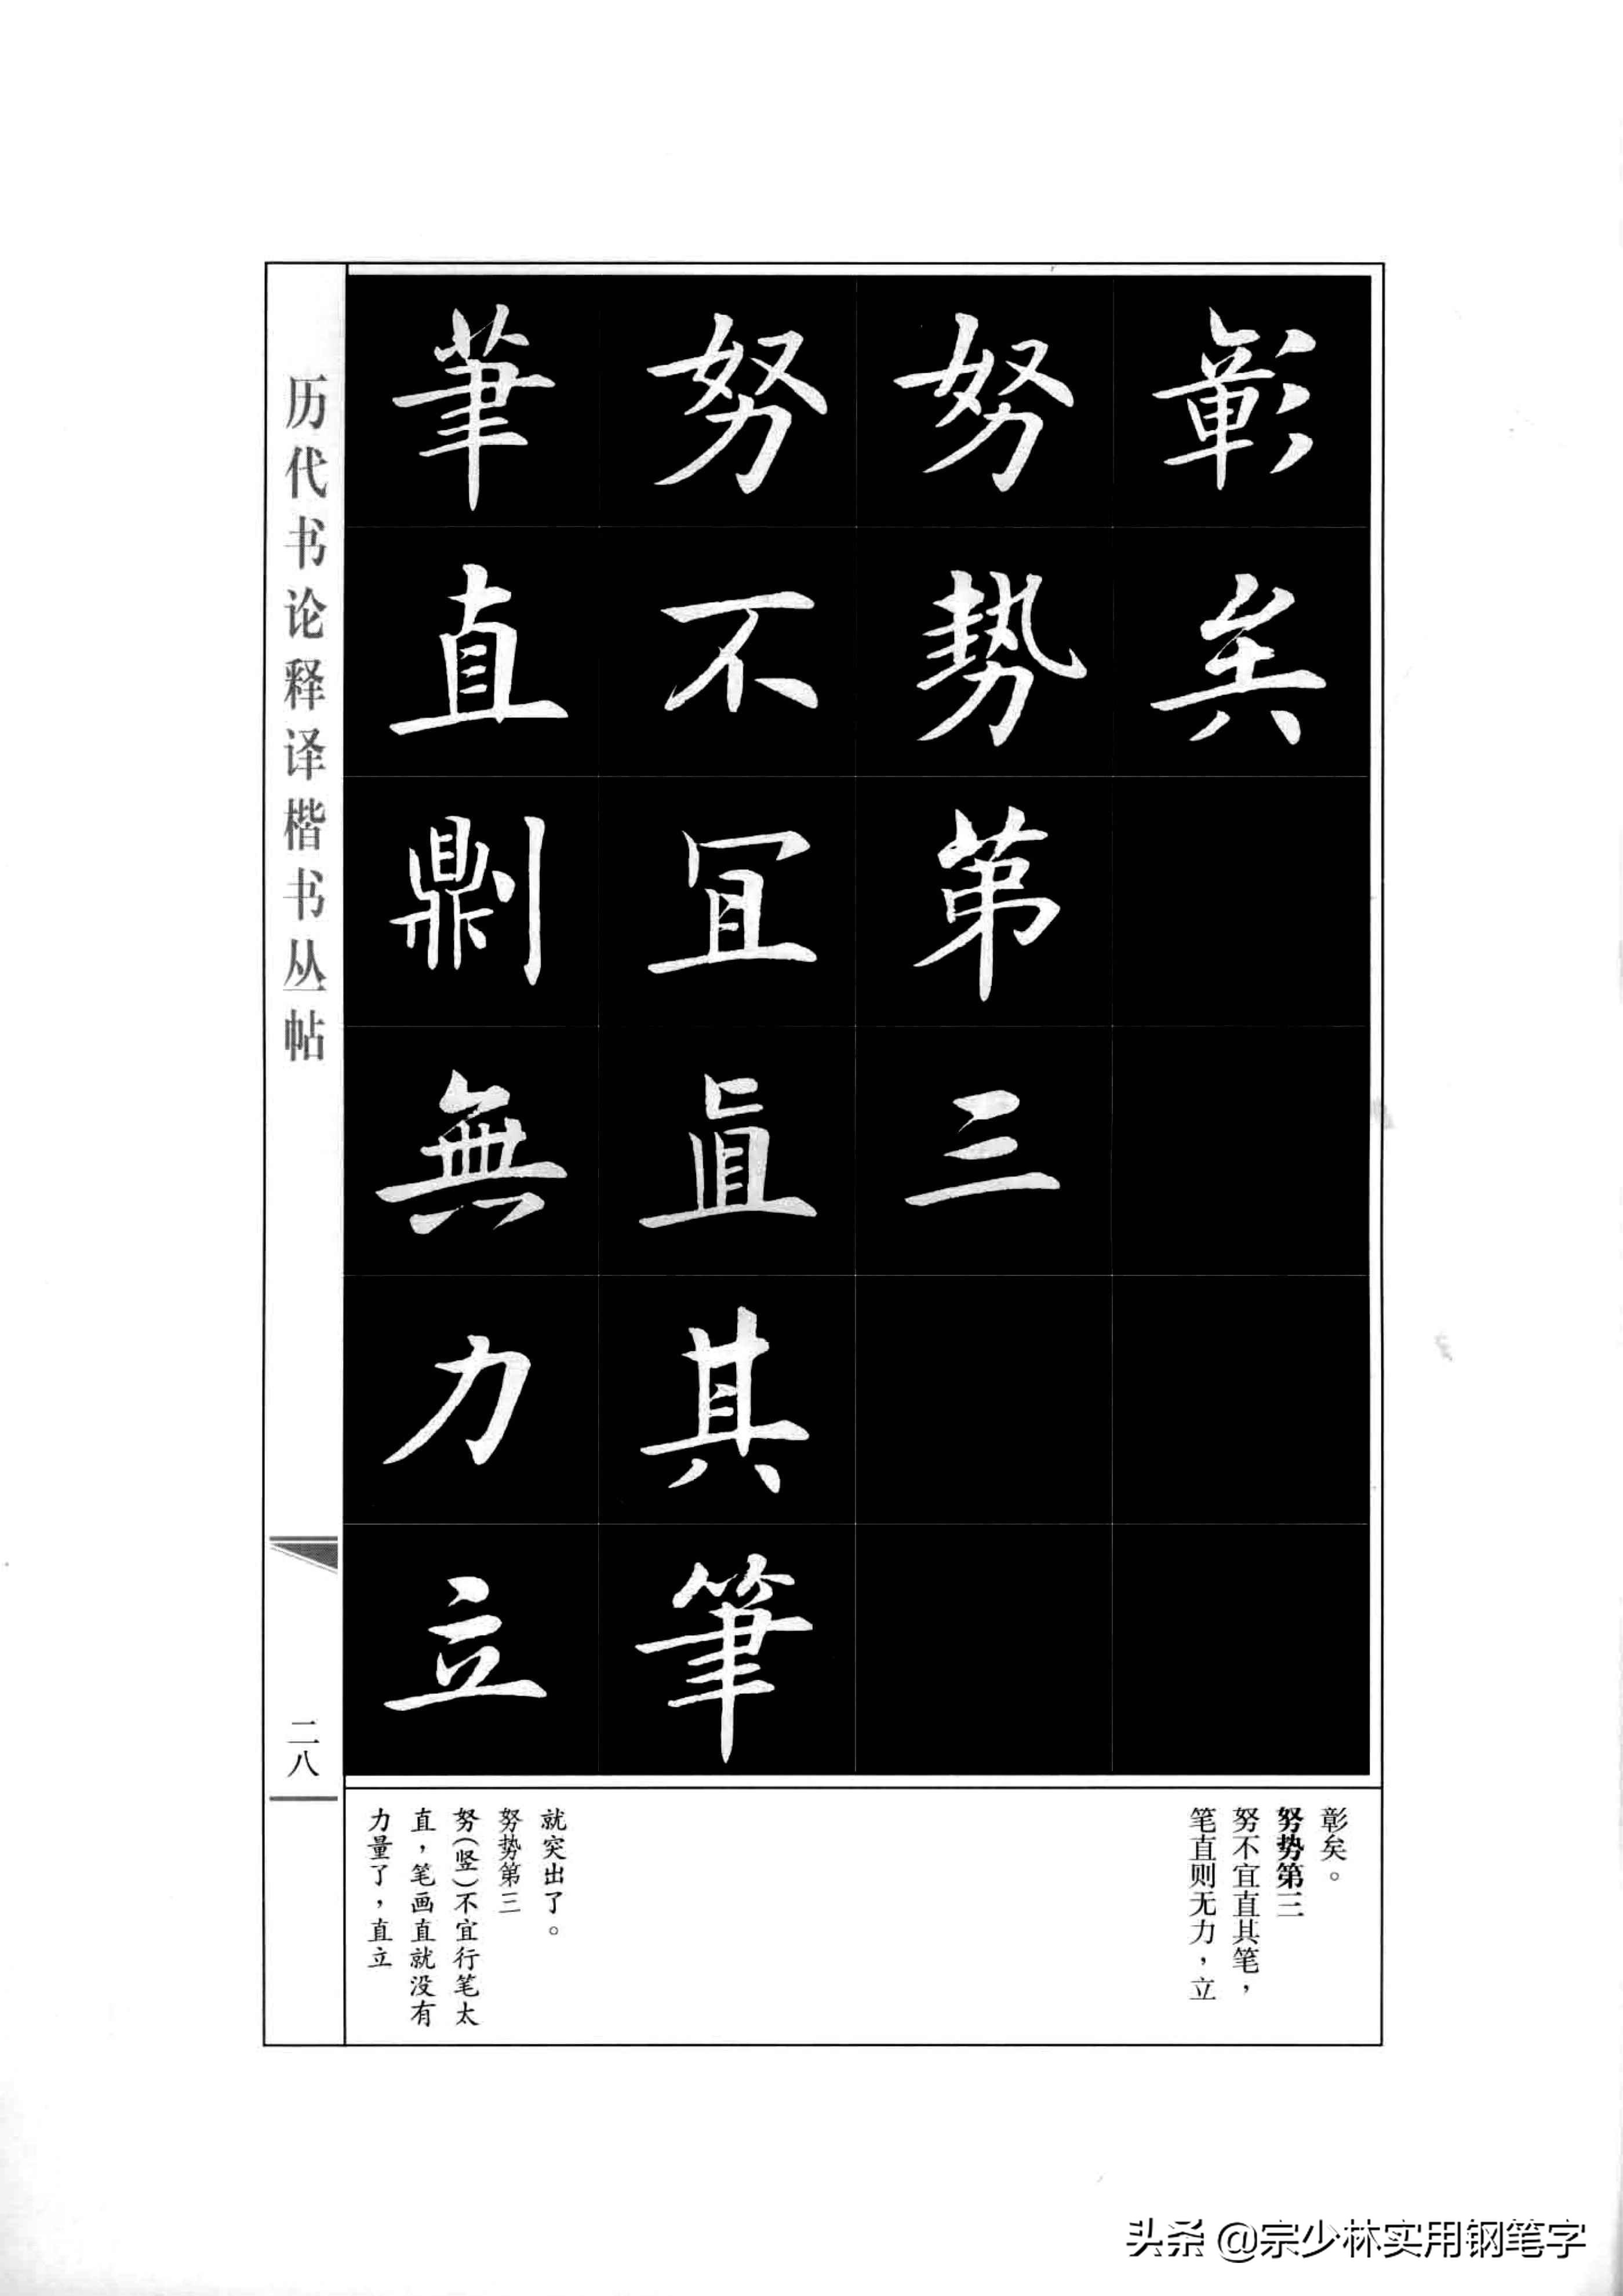 彰矣
努勢第三
努不冝直其筆
筆直則無力立
历代书论释译楷书丛帖
二八
彰矣。
努势第三
努不宜直其笔，
笔直则无力，立
就突出了。
努势第三
努（竖）不宜行笔太
直，笔画直就没有
力量了，直立
头条 @宗少林实用钢笔字